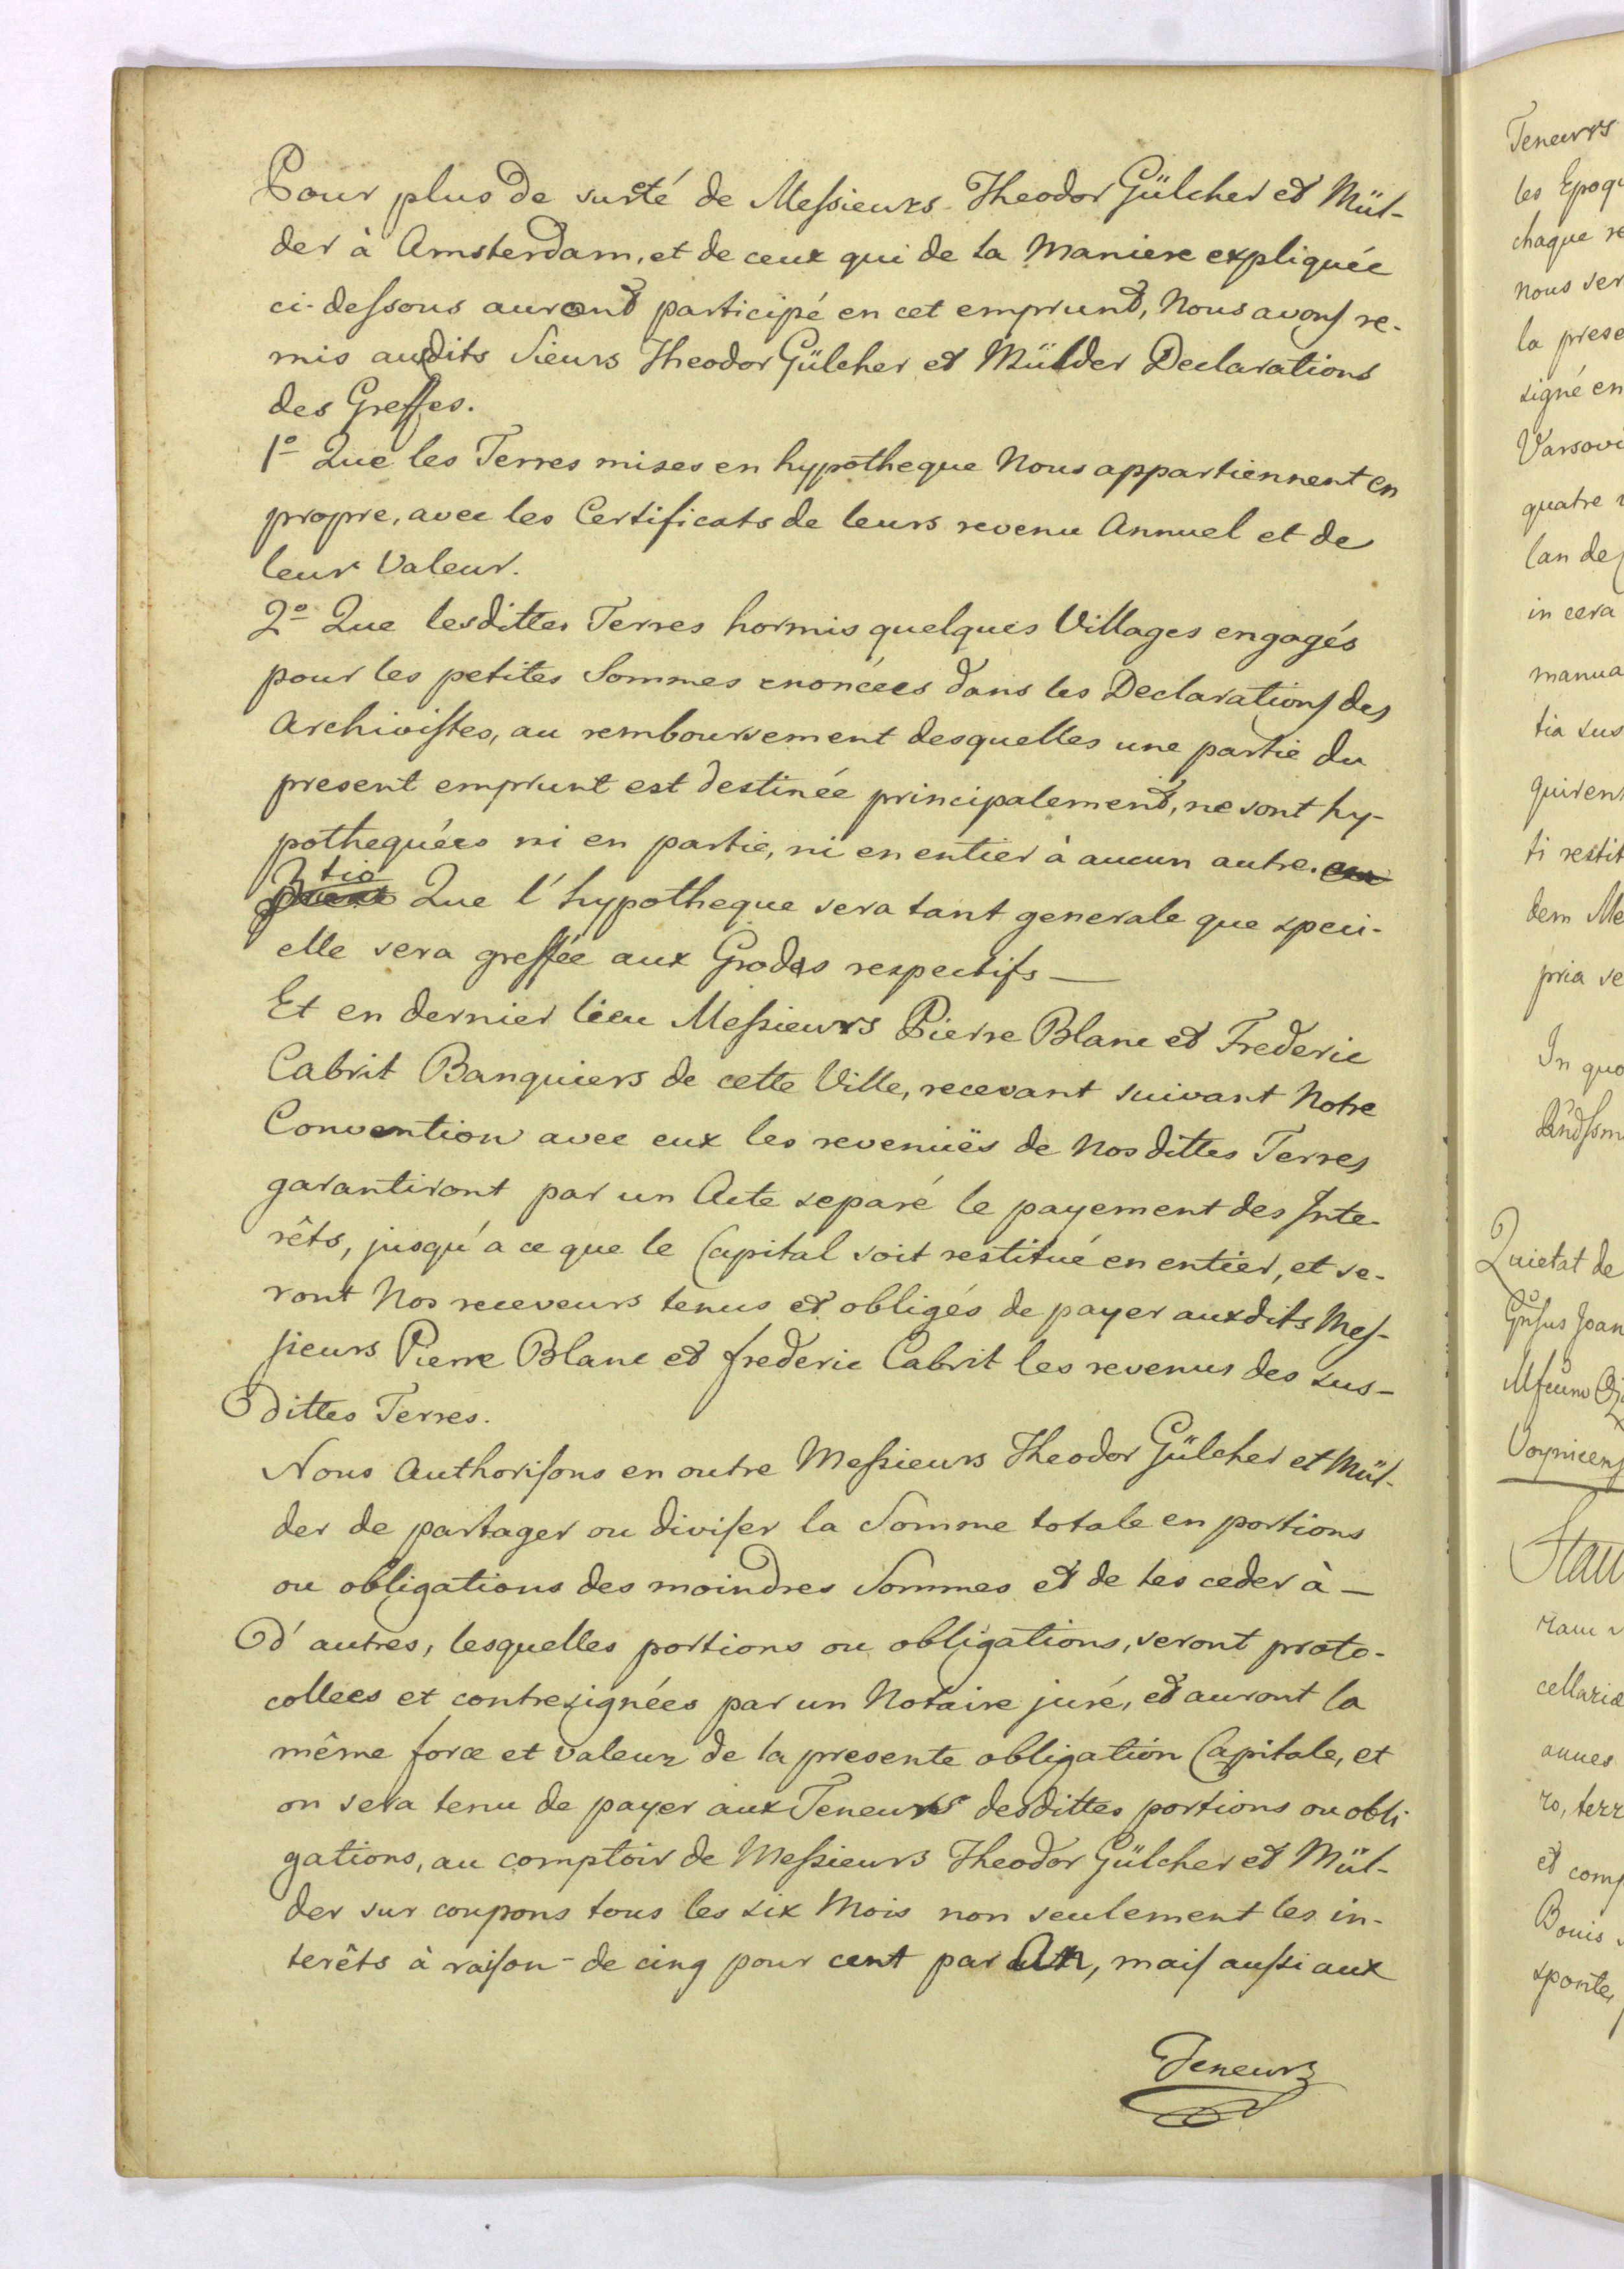 Pour plus de sureté de Messieurs Theodor Gülcher et Mül-
der à Amsterdam, et de ceux qui de la Maniere expliquée
ci-dessous auront participé en cet emprunt, Nous avons re-
mis audits Sieurs Theodor Gülcher et Mülder Declarations
des Greffes.
1º Que les Terres mises en hypotheque Nous appartiennent en
propre, avec les Certificats de leurs revenu Annuel et de
leur Valeur.
2º Que lesdittes Terres hormis quelques Villages engagés
pour les petites Sommes enoncées dans les Declarations des
Archivistes, au remboursement desquelles une partie du
present emprunt est destinée principalement, ne sont hy-
pothequées ni en partie, ni en entier à aucun autre.
3tio Que l'hypotheque sera tant generale que speci-
elle sera greffée aux Grodes respectifs —
Et en dernier lieu Messieurs Pierre Blanc et Frederic
Cabrit Banquiers de cette Ville, recevant suivant Notre
Convention avec eux les revenuës de Nos dittes Terres
garantiront par un Acte separé le payement des Inte-
rêts, jusqu'a ce que le Capital soit restitué en entier, et se-
ront Nos receveurs tenus et obligés de payer auxdits Mes-
sieurs Pierre Blanc et frederic Cabrit les revenus des sus-
dittes Terres.
Nous Authorisons en outre Messieurs Theodor Gülcher et Mül-
der de partager ou diviser la Somme totale en portions
ou obligations des moindres Sommes et de les ceder à —
d'autres, lesquelles portions ou obligations, seront proto-
collees et contresignées par un Notaire juré, et auront la
même force et valeur de la presente obligation Capitale, et
on sera tenu de payer aux Teneurs desdittes portions ou obli
gations, au comptoir de Messieurs Theodor Gülcher et Mül-
der sur coupons tous les six Mois non seulement les in-
terêts à raison - de cinq pour cent par An, mais aussi aux
Teneurs
Teneurs
les Epoq
chaque re
nous ser
la prese
signé en
Varsovi
quatre
lan de
in cera
manua
tia sus
quiren
ti restit
dem Me
pria se
In quo
Quietat de
Joan
Stan
cellariæ
annes
ro, terr
et comp
Bonis
sponte,